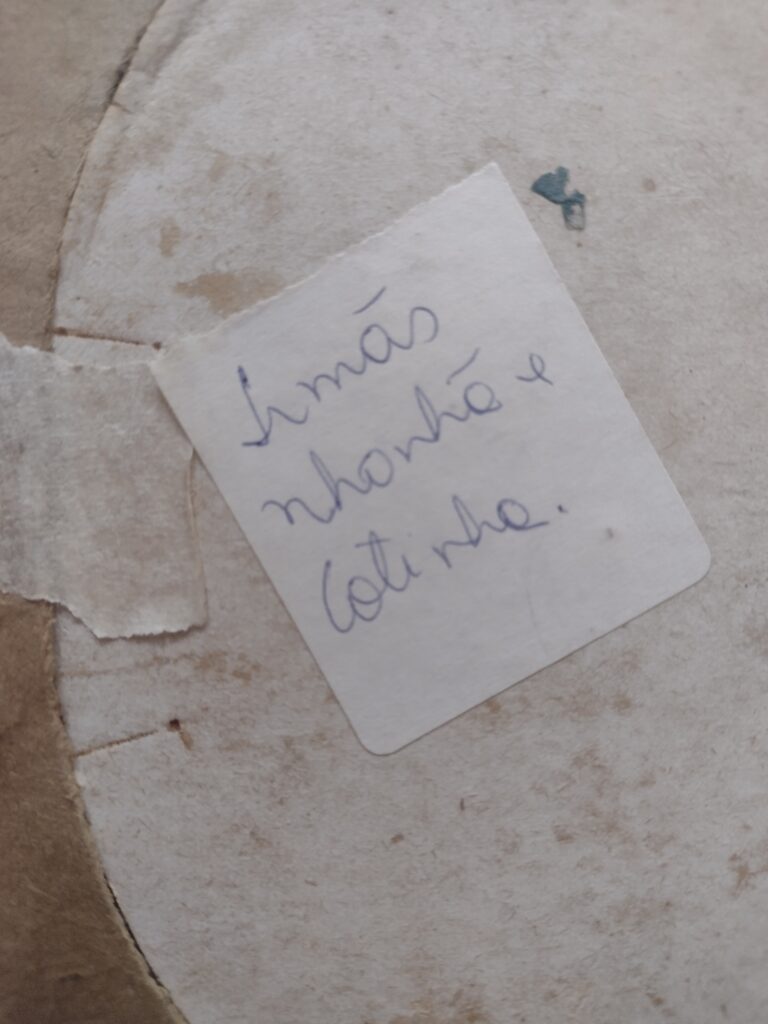 Irmãs
nhonhã e
Cotinha.